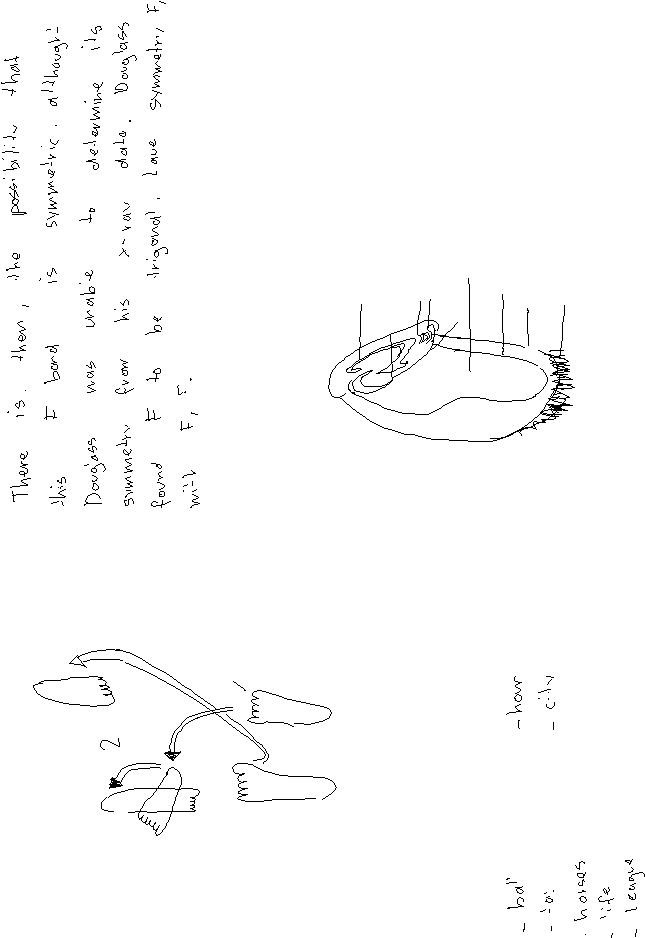 There is, then, the possibility that
this F band is symmetric, although
Douglass was unable to determine its
symmetry from his x-ray data. Douglass
found F to be trigonal, Laue symmetry F,
with F, F.
2
- hour
- city
- ball
- horses
- life
- league